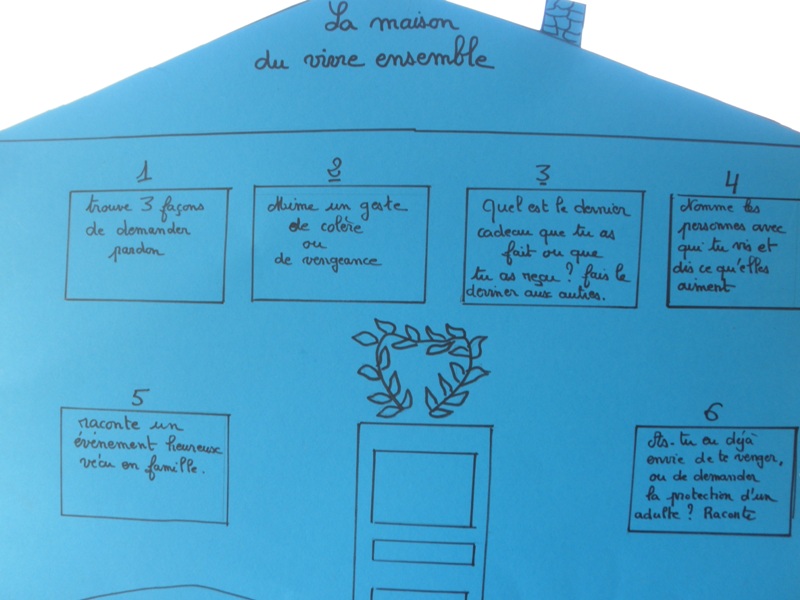 La maison
du vivre ensemble
1
trouve 3 façons
de demander
pardon
2
Mime un geste
de colère
ou
de vengeance
3
Quel est le dernier
cadeau que tu as
fait ou que
tu as reçu ? fais le
deviner aux autres.
4
Nomme les
personnes avec
qui tu vis et
dis ce qu'elles
aiment
5
raconte un
événement heureux
vécu en famille.
6
As-tu eu déjà
envie de te venger,
ou de demander
la protection d'un
adulte ? Raconte